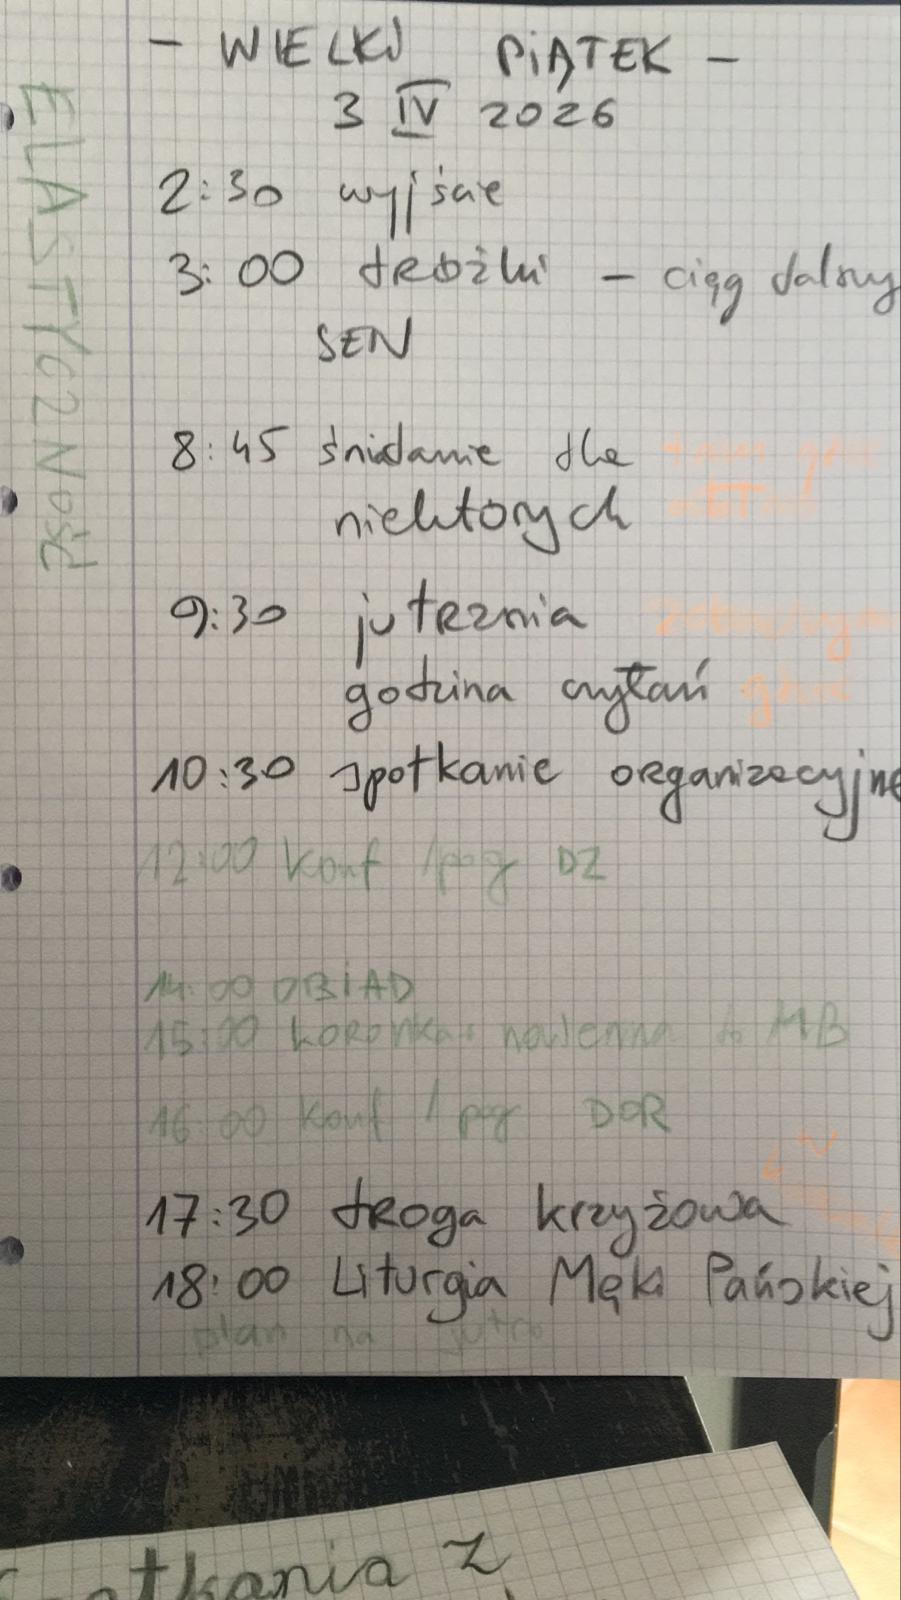 - WIELKI PIĄTEK -
3 IV 2026
ELASTYCZNOŚĆ
2:30 wyjście
3:00 dróżki - ciąg dalszy
SEN
8:45 śniadanie dla
niektórych
9:30 jutrznia
godzina czytań
10:30 spotkanie organizacyjne
12:00 konf /pog DZ
14:00 OBIAD
15:00 koronka + nowenna do MB
16:00 konf / pog DOR
17:30 droga krzyżowa
18:00 Liturgia Męki Pańskiej
plan na jutro
spotkania z